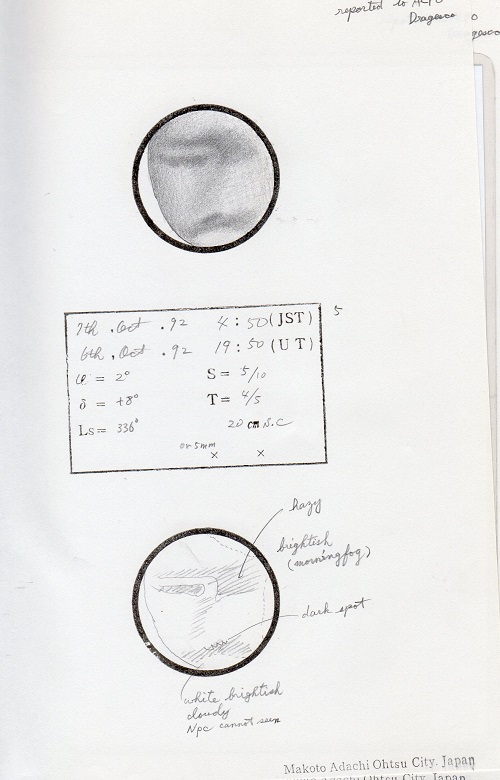 reported to ALPO
Dragesco
gesco
7th , Oct . 92 4 : 50 (JST)
5
6th , Oct . 92 19 : 50 (UT)
ω = 2° S = 5/10
δ = +8° T = 4/5
Ls = 336° 20 cm S.C
or 5mm
× ×
hazy
brightish
(morning fog)
dark spot
white brightish
cloudy
Npc cannot seen
Makoto Adachi Ohtsu City. Japan
Adachi Ohtsu City. Japan